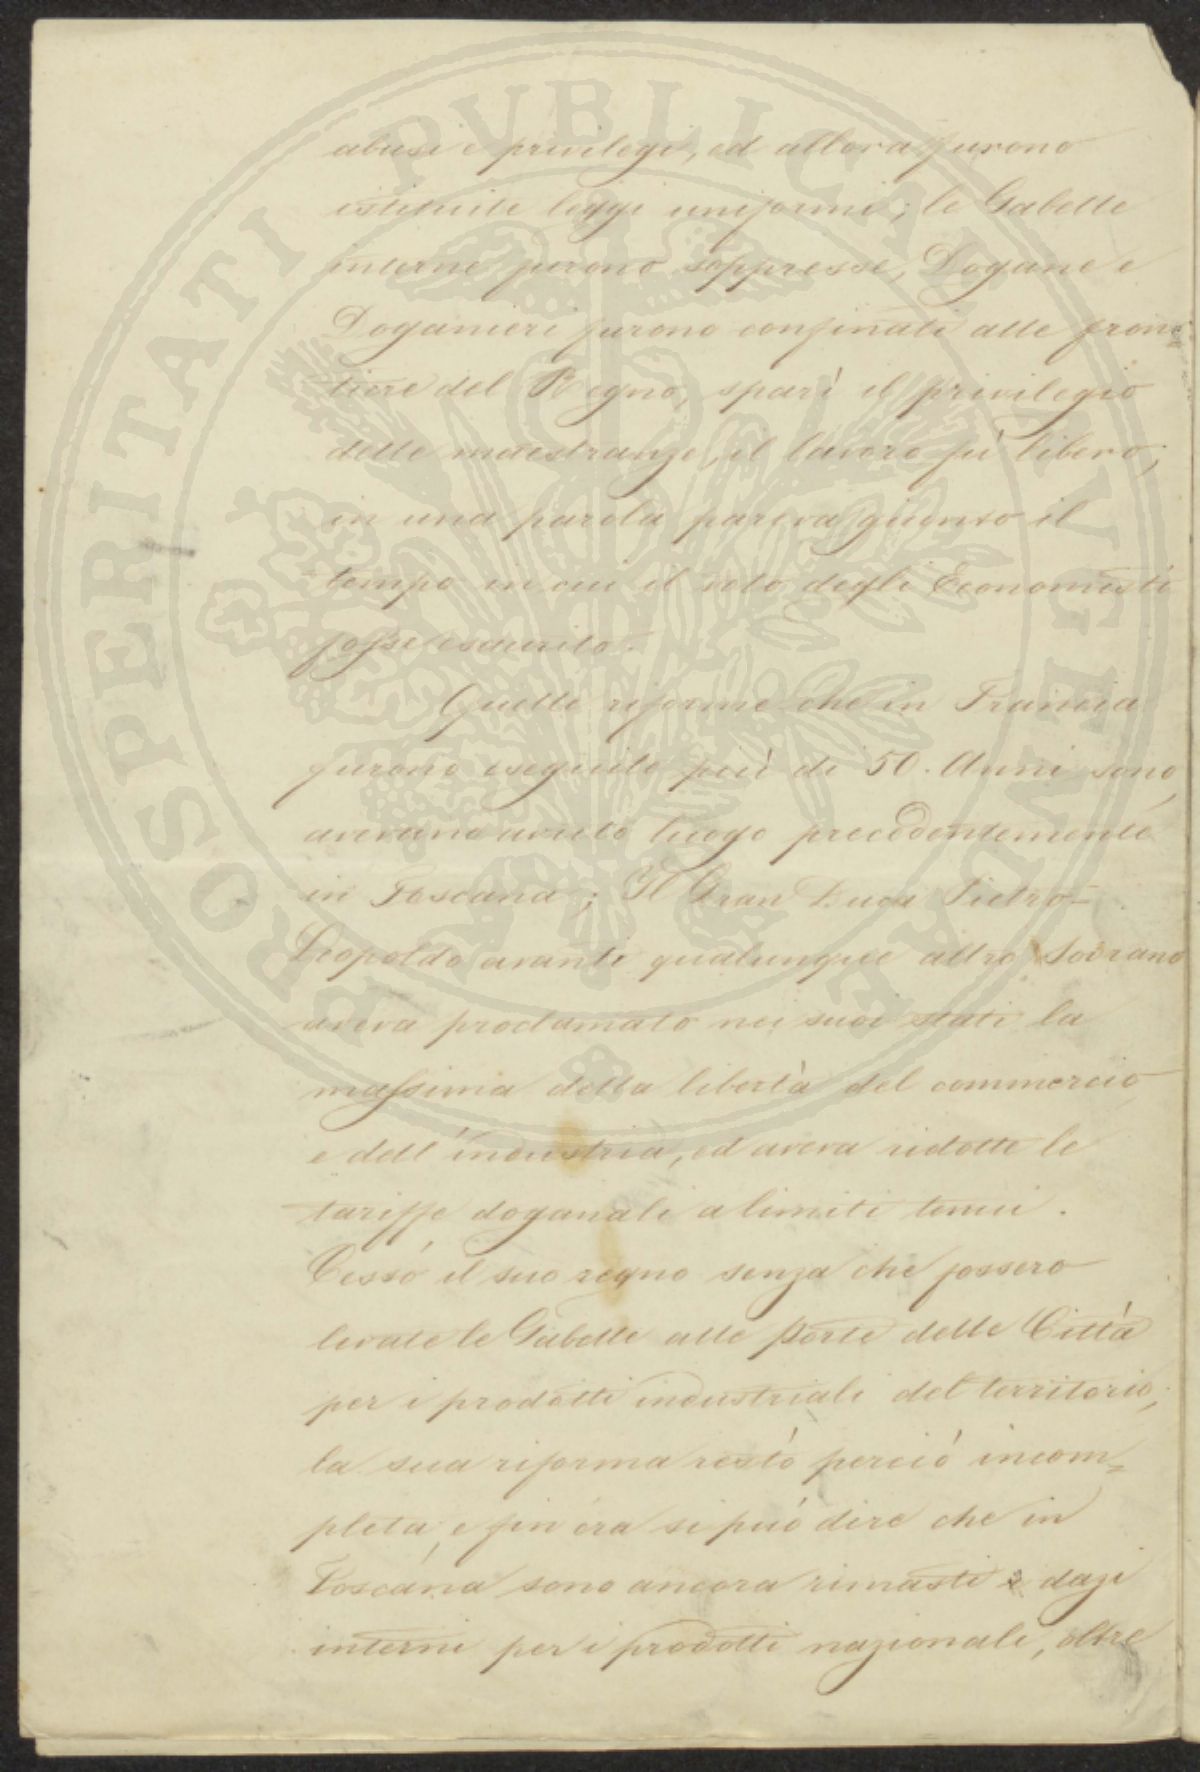 abusi e privilegi, ed allora furono
istituite leggi uniformi; le Gabelle
interne furono soppresse, Dogane e
Doganieri furono confinati alle fron=
tiere del Regno, sparì il privilegio
delle maestranze, il lavoro fù libero;
in una parola pareva giunto il
tempo in cui il voto degli Economisti
fosse esaurito.
Quelle riforme che in Francia
furono eseguite più di 50. Anni sono,
avevano avuto luogo precedentemente
in Toscana; Il Gran Duca Pietro=
Leopoldo avanti qualunque altro Sovrano
aveva proclamato nei suoi stati la
massima della libertà del commercio
e dell'industria, ed aveva ridotte le
tariffe doganali a limiti tenui.
Cessò il suo regno senza che fossero
levate le Gabelle alle porte delle Città
per i prodotti industriali del territorio,
la sua riforma restò perciò incom=
pleta, e fin'ora si può dire che in
Toscana sono ancora rimasti dazi
interni per i prodotti nazionali, oltre
PROSPERITATI PVBLICAE AVGENDAE